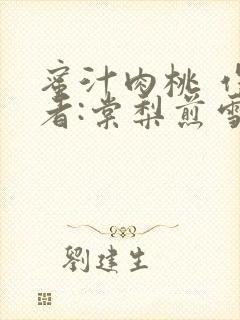 蜜汁肉桃
者:棠梨煎雪
劉建生